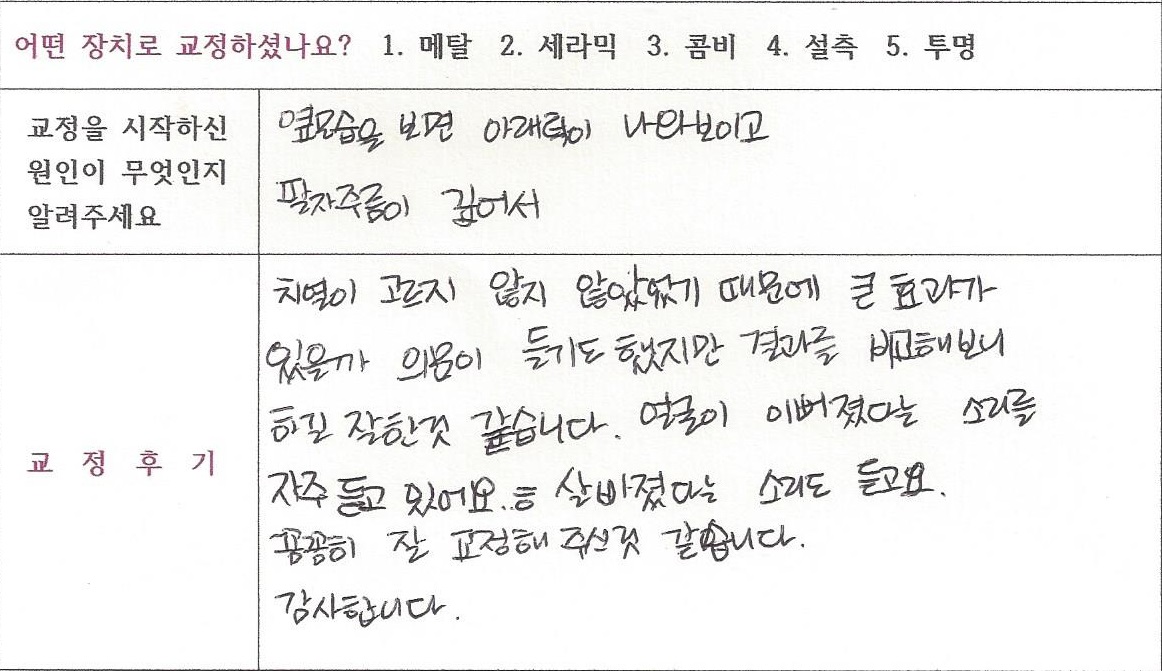 어떤 장치로 교정하셨나요? 1. 메탈 2. 세라믹 3. 콤비 4. 설측 5. 투명
교정을 시작하신
원인이 무엇인지
알려주세요
옆모습을 보면 아래턱이 나와보이고
팔자주름이 깊어서
교 정 후 기
치열이 고르지 않지 않았었기 때문에 큰 효과가
있을까 의문이 들기도 했지만 결과를 비교해보니
하길 잘한것 같습니다. 얼굴이 이뻐졌다는 소리를
자주 듣고 있어요..ㅎ 살빠졌다는 소리도 듣고요.
꼼꼼히 잘 교정해 주신것 같습니다.
감사합니다.